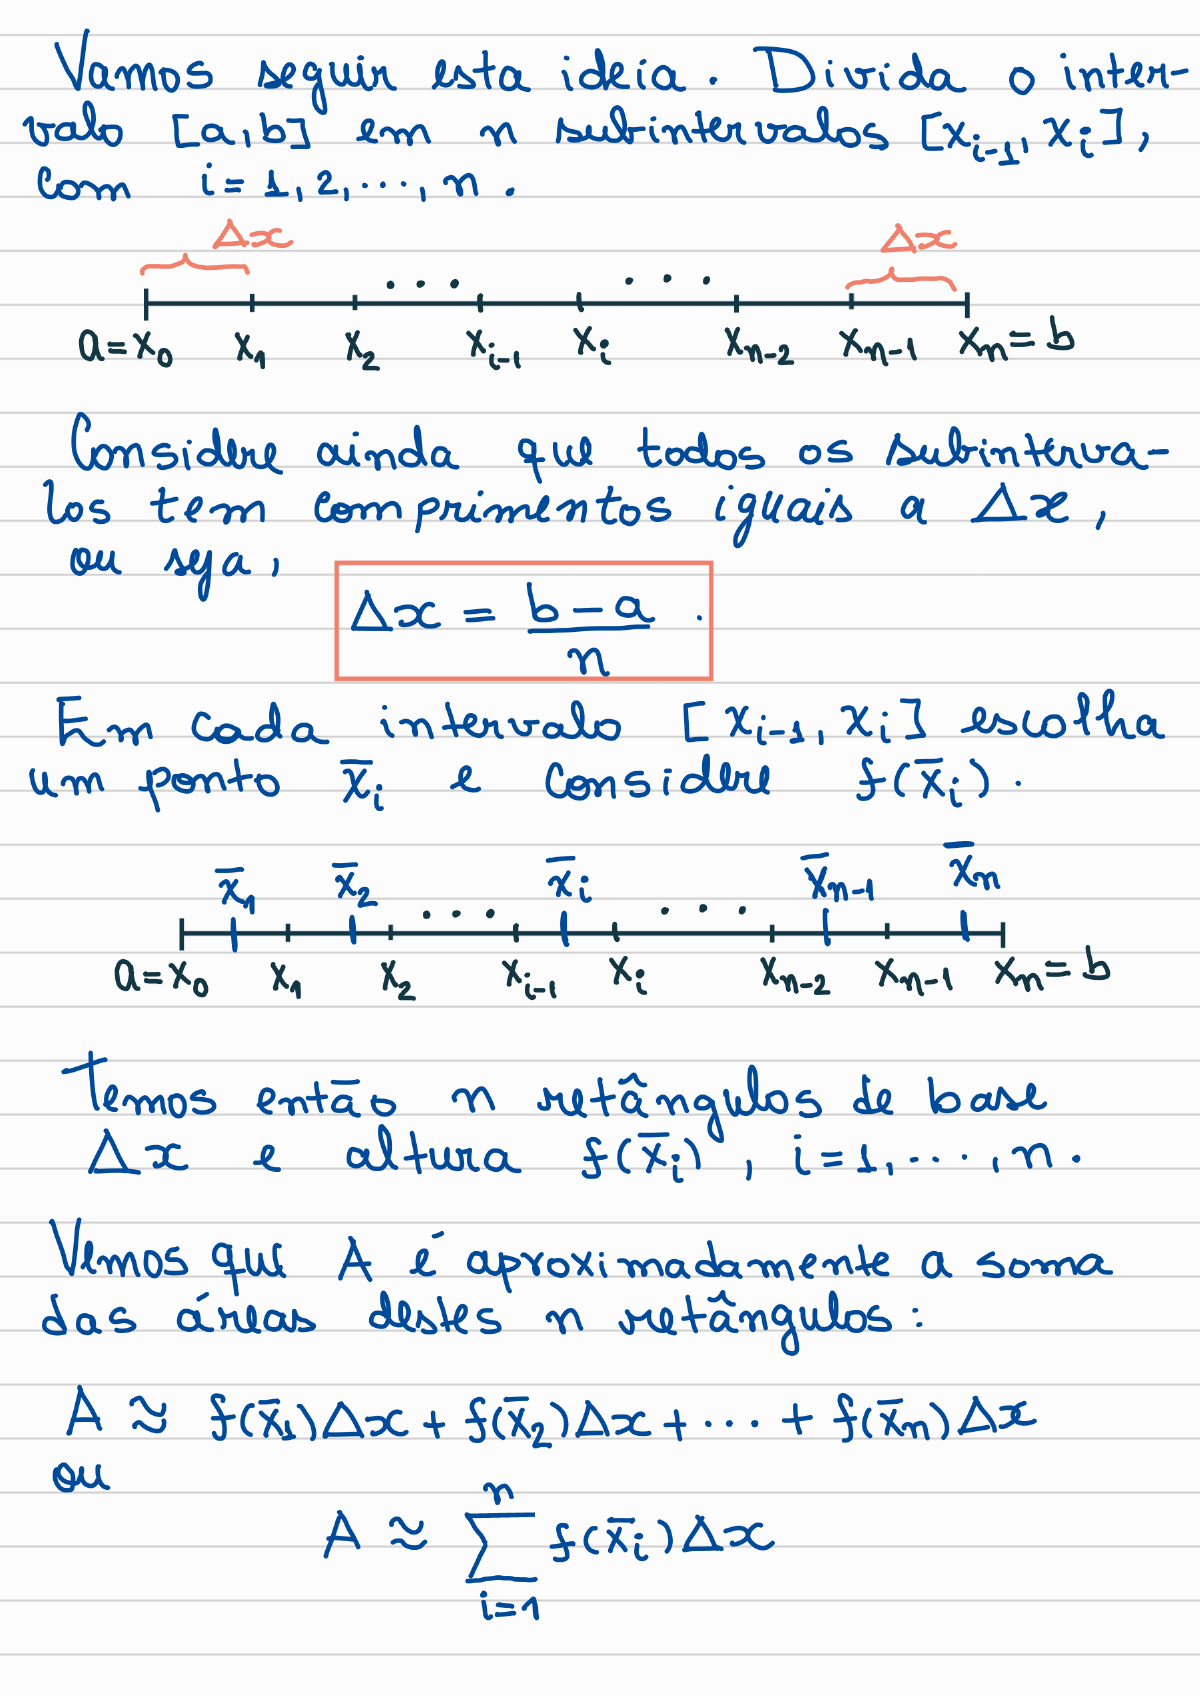 Vamos seguir esta ideia. Divida o inter-
valo [a,b] em n subintervalos [x_{i-1}, x_i],
com i=1,2,...,n.
Δx Δx
... ...
a=x_0 x_1 x_2 x_{i-1} x_i x_{n-2} x_{n-1} x_n=b
Considere ainda que todos os subinterva-
los tem comprimentos iguais a Δx,
ou seja,
Δx = \frac{b-a}{n}.
Em cada intervalo [x_{i-1}, x_i] escolha
um ponto x̄_i e considere f(x̄_i).
x̄_1 x̄_2 ... x̄_i ... x̄_{n-1} x̄_n
a=x_0 x_1 x_2 x_{i-1} x_i x_{n-2} x_{n-1} x_n=b
Temos então n retângulos de base
Δx e altura f(x̄_i), i=1,...,n.
Vemos que A é aproximadamente a soma
das áreas destes n retângulos:
A ≈ f(x̄_1)Δx + f(x̄_2)Δx + ... + f(x̄_n)Δx
ou
A ≈ \sum_{i=1}^{n} f(x̄_i)Δx